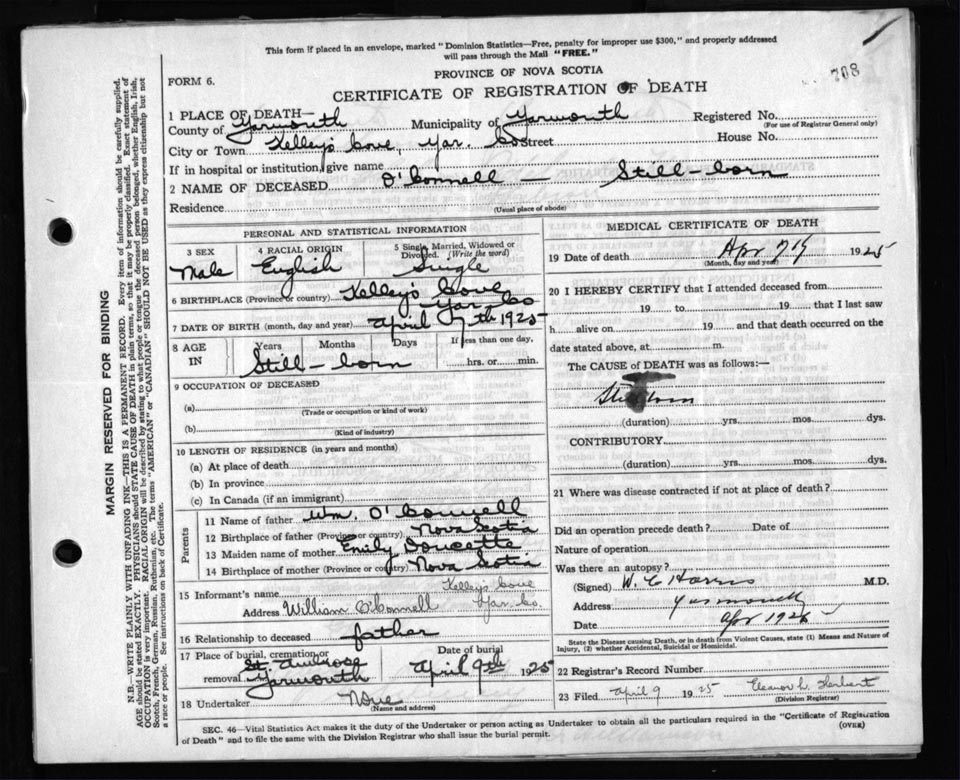 This form if placed in an envelope, marked "Dominion Statistics—Free, penalty for improper use $300," and properly addressed
will pass through the Mail "FREE."
708
FORM 6.
PROVINCE OF NOVA SCOTIA
CERTIFICATE OF REGISTRATION OF DEATH
1 PLACE OF DEATH—
County of Yarmouth Municipality of Yarmouth Registered No.
(For use of Registrar General only)
City or Town Kelley's Cove, Yar. Co Street House No.
If in hospital or institution, give name
2 NAME OF DECEASED O'Connell — Still-born
Residence
(Usual place of abode)
PERSONAL AND STATISTICAL INFORMATION
3 SEX 4 RACIAL ORIGIN 5 Single, Married, Widowed or Divorced. (Write the word)
Male English Single
6 BIRTHPLACE (Province or country) Kelley's Cove
Yar. Co
7 DATE OF BIRTH (month, day and year) April 7th 1925
8 AGE IN Years Months Days If less than one day,
Still-born hrs. or min.
9 OCCUPATION OF DECEASED
(a)
(Trade or occupation or kind of work)
(b)
(Kind of industry)
10 LENGTH OF RESIDENCE (in years and months)
(a) At place of death
(b) In province
(c) In Canada (if an immigrant)
Parents
11 Name of father Wm. O'Connell
12 Birthplace of father (Province or country) Nova Scotia
13 Maiden name of mother Emily Doucette
14 Birthplace of mother (Province or country) Nova Scotia
15 Informant's name Kelley's Cove
Address William O'Connell Yar. Co.
16 Relationship to deceased father
17 Place of burial, cremation or removal St. Ambrose Yarmouth
Date of burial April 9th 1925
18 Undertaker None
(Name and address)
MEDICAL CERTIFICATE OF DEATH
19 Date of death Apr 7th 1925
(Month, day and year)
20 I HEREBY CERTIFY that I attended deceased from
19 to 19 that I last saw
h alive on 19 and that death occurred on the
date stated above, at m.
The CAUSE of DEATH was as follows:—
Still born
(duration) yrs. mos. dys.
CONTRIBUTORY
(duration) yrs. mos. dys.
21 Where was disease contracted if not at place of death?
Did an operation precede death? Date of
Nature of operation
Was there an autopsy?
(Signed) W. C. Harris M.D.
Address Yarmouth
Date Apr 1925
State the Disease causing Death, or in death from Violent Causes, state (1) Means and Nature of
Injury, (2) whether Accidental, Suicidal or Homicidal.
22 Registrar's Record Number
23 Filed April 9 1925 Eleanor L. Herbert
(Division Registrar)
SEC. 46—Vital Statistics Act makes it the duty of the Undertaker or person acting as Undertaker to obtain all the particulars required in the "Certificate of Registration
of Death" and to file the same with the Division Registrar who shall issue the burial permit. (OVER)
MARGIN RESERVED FOR BINDING
N.B.—WRITE PLAINLY WITH UNFADING INK—THIS IS A PERMANENT RECORD. Every item of information should be carefully supplied.
AGE should be stated EXACTLY. PHYSICIANS should STATE CAUSE OF DEATH in plain terms, so that it may be properly classified. Exact statement of
OCCUPATION is very important. RACIAL ORIGIN will be described by stating to what people or tongue the deceased person belonged, whether English, Irish,
Scotch, French, German, Russian, Ruthenian, etc. The terms "AMERICAN" or "CANADIAN" SHOULD NOT BE USED as they express citizenship but not
a race or people. See instructions on back of Certificate.